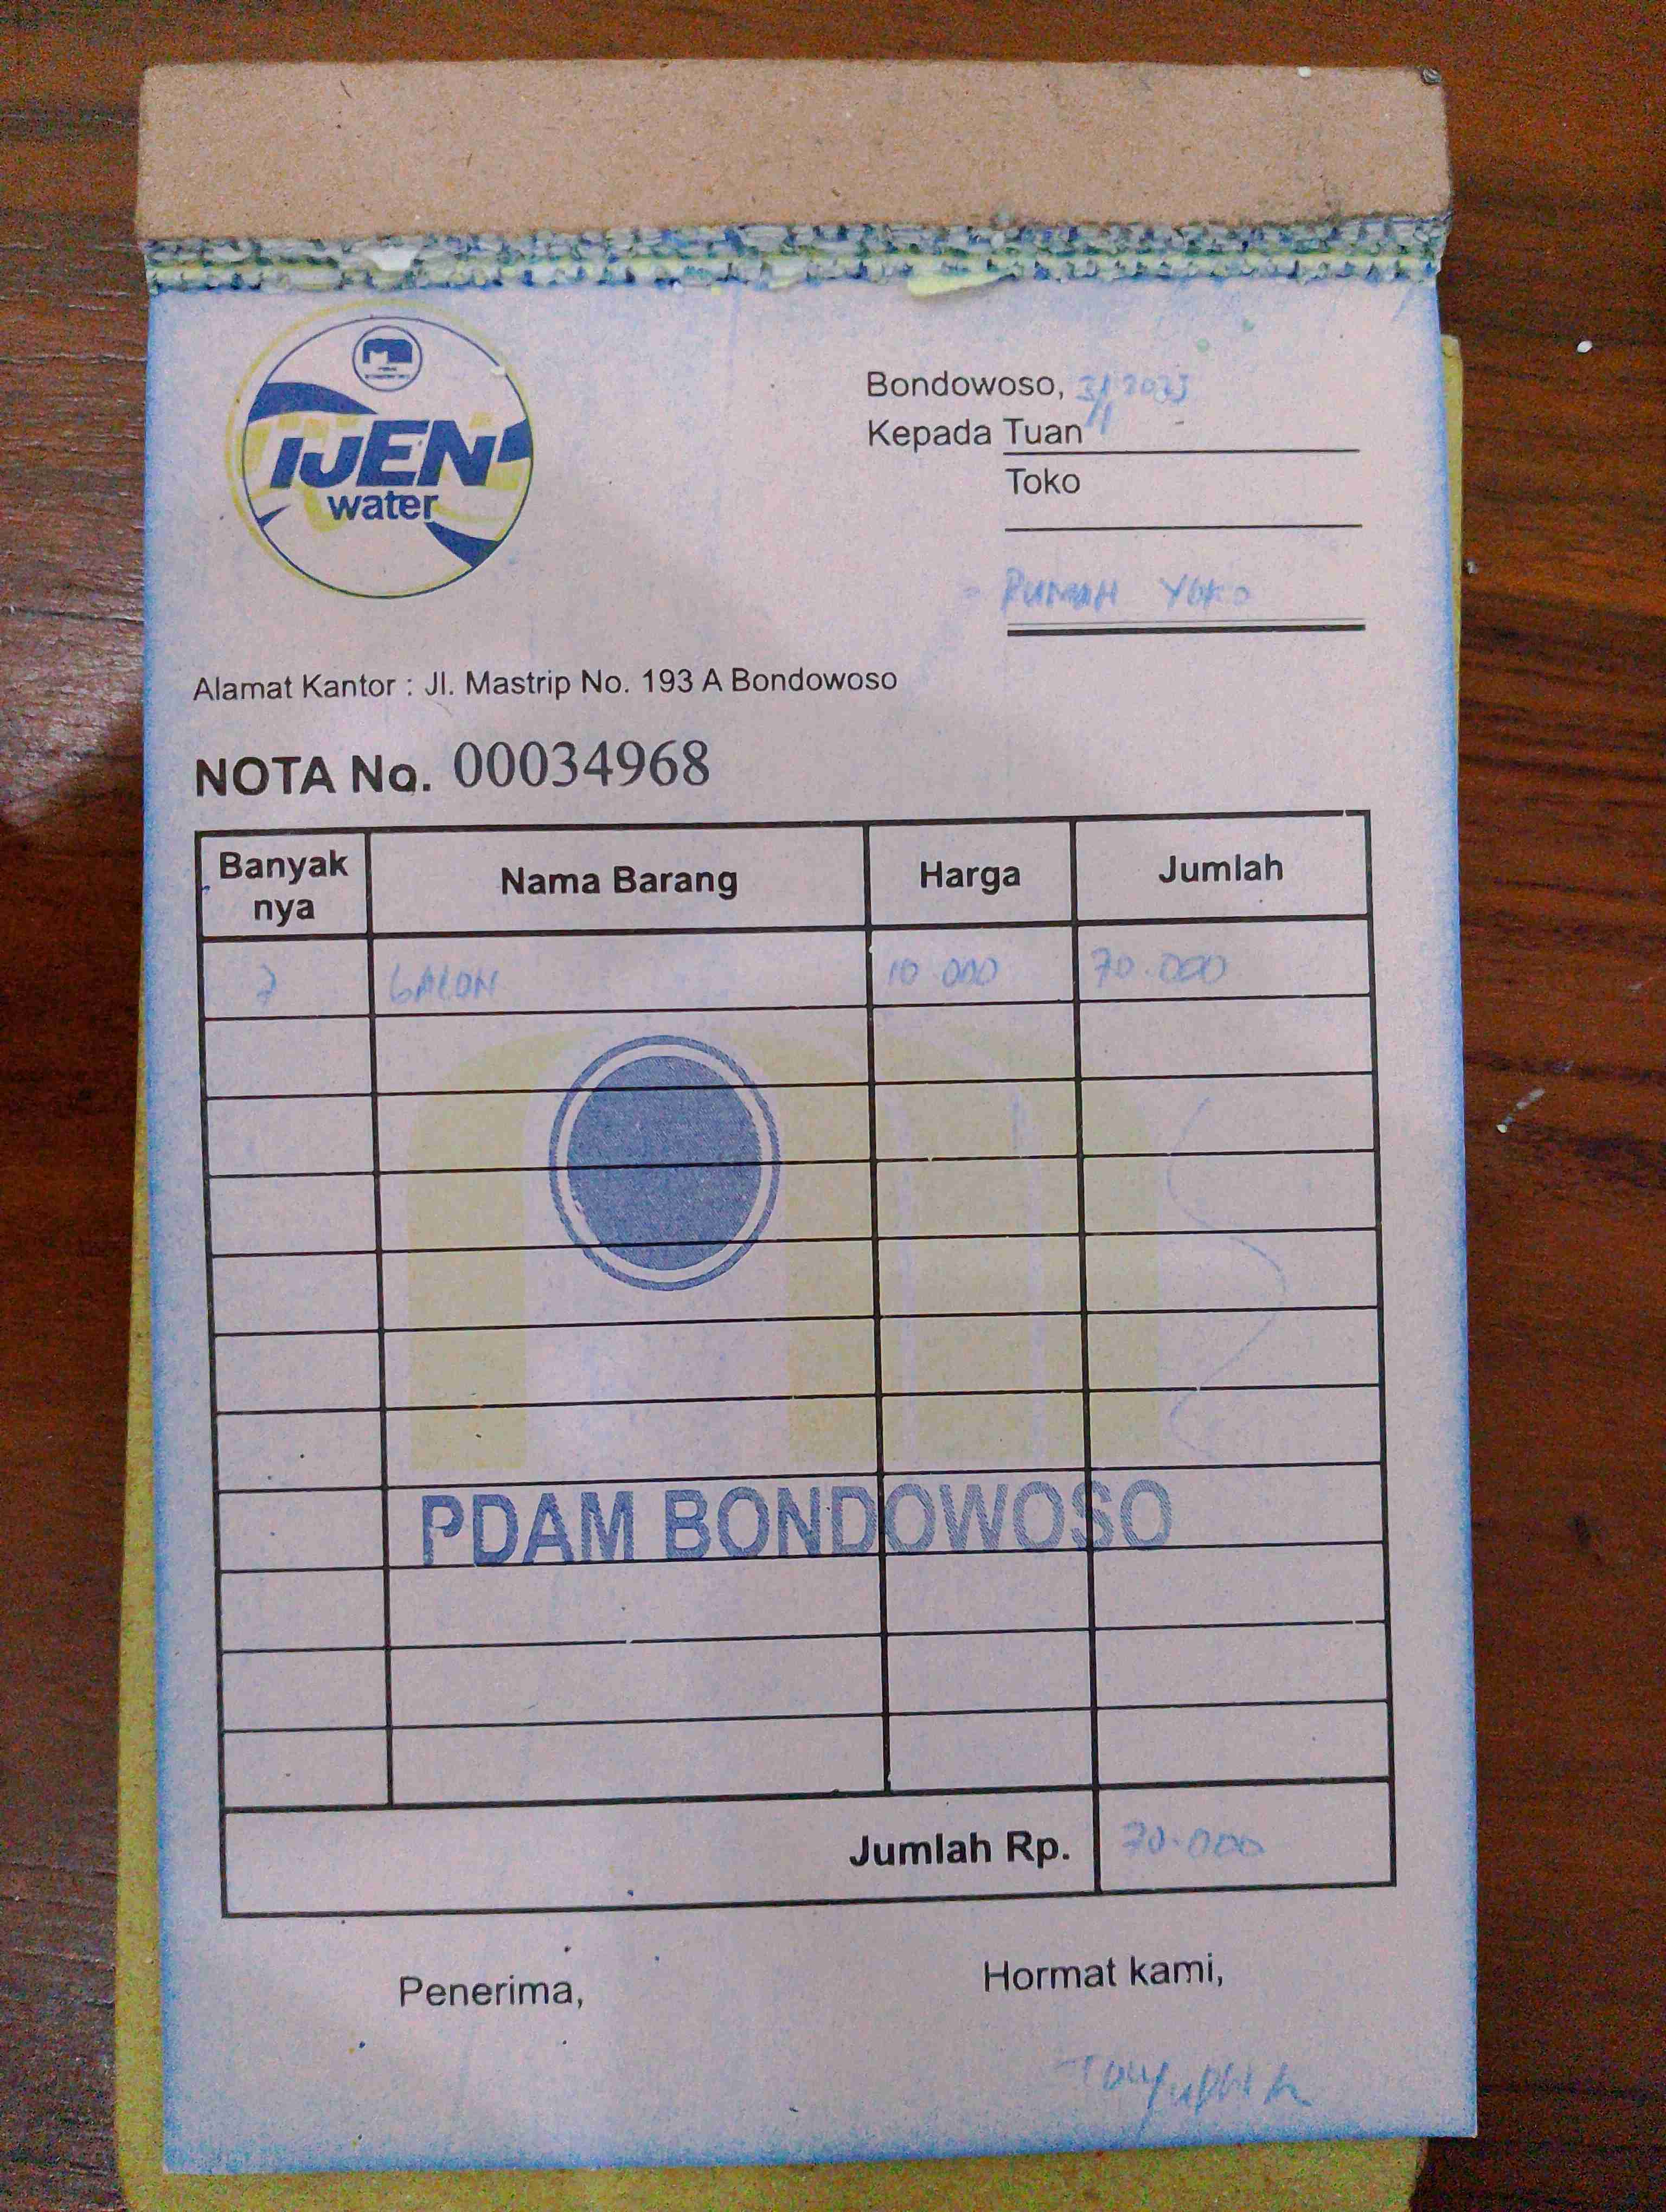 IJEN
water
Bondowoso, 3/1 2023
Kepada Tuan
Toko
RUMAH YOKO
Alamat Kantor : Jl. Mastrip No. 193 A Bondowoso
NOTA No. 00034968
Banyak nya Nama Barang Harga Jumlah
7 GALON 10.000 70.000
PDAM BONDOWOSO
Jumlah Rp. 70.000
Penerima, Hormat kami,